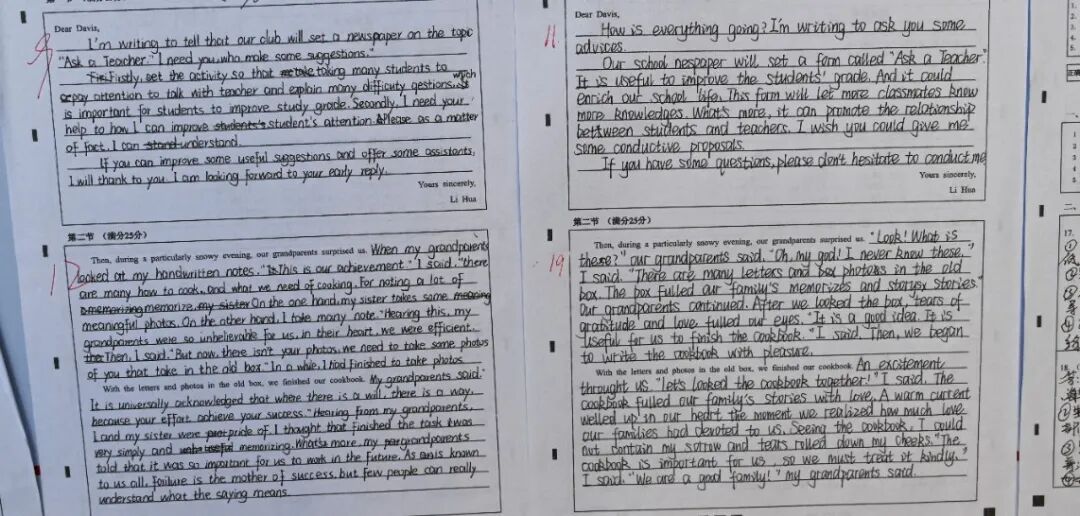 Dear Davis,
I'm writing to tell that our club will set a newspaper on the topic
"Ask a Teacher." I need you who make some suggestions."
Firstly, set the activity so that taking many students to
pay attention to talk with teacher and explain many difficuty qestions, which
is important for students to improve study grade. Secondly, I need your
help to how I can improve student's attention. Please as a matter
of fact, I can understand.
If you can improve some useful suggestions and offer some assistants,
I will thank to you. I am looking forward to your early reply.
Yours sincerely,
Li Hua
第二节 (满分25分)
Then, during a particularly snowy evening, our grandparents surprised us. When my grandparents
looked at my handwritten notes. "This is our achievement" I said. "there
are many how to cook, and what we need of cooking. For noting a lot of
memorize. On the one hand, my sister takes some
meaningful photos. On the other hand, I take many note. "Hearing this, my
grandparents were so unbelievable for us, in their heart, we were efficient.
Then, I said. "But now, there isn't your photos, we need to take some photos
of you that take in the old box." In a while, I had finished to take photos.
With the letters and photos in the old box, we finished our cookbook. My grandparents said."
It is universally acknowledged that where there is a will, there is a way,
because your effort achieve your success." Hearing from my grandparents,
I and my sister were pride of. I thought that finished the task was
very simply and memorizing. What's more, my grandparents
told that it was so important for us to work in the future. As is known
to us all, failure is the mother of success, but few people can really
understand what the saying means.
11
Dear Davis,
How is everything going? I'm writing to ask you some
advices.
Our school nespaper will set a form called "Ask a Teacher".
It is useful to improve the students' grade. And it could
enrich our school life. This form will let more classmates know
more knowledges. What's more, it can promote the relationship
between students and teachers. I wish you could give me
some conductive proposals.
If you have some questions, please don't hesitate to conduct me
Yours sincerely,
Li Hua
第二节 (满分25分)
19
Then, during a particularly snowy evening, our grandparents surprised us. "Look! What is
these?" our grandparents said. "Oh, my god! I never knew these,"
I said. "There are many letters and photos in the old
box. The box fulled our family's memorizes and storys stories."
Our grandparents continued. After we looked the box, tears of
gratitude and love fulled our eyes. "It is a good idea. It is
useful for us to finish the cookbook." I said. Then, we began
to write the cookbook with pleasure.
With the letters and photos in the old box, we finished our cookbook. An excitement
throught us. "let's looked the cookbook together!" I said. The
cookbook fulled our family's stories with love. A warm current
welled up in our heart the moment we realized how much love
our families had devoted to us. Seeing the cookbook, I could
out contain my sorrow and tears rolled down my cheeks. "The
cookbook is important for us, so we must treat it kindly,"
I said. "We are a good family!" my grandparents said.
17.
18.